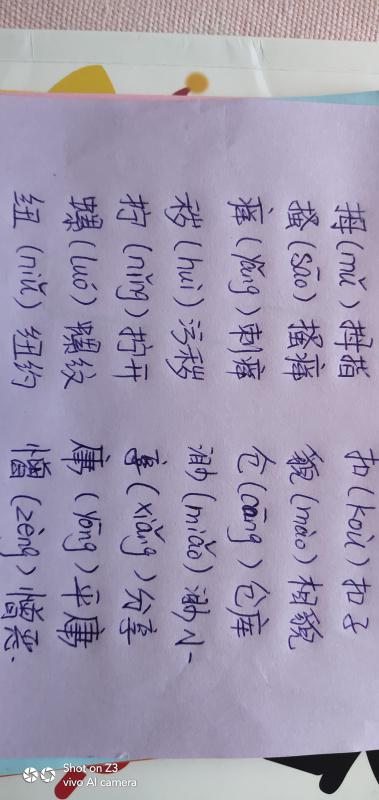 拇(mǔ)拇指 扣(kòu)扣子
搔(sāo)搔痒 貌(mào)相貌
痒(yǎng)刺痒 仓(cāng)仓库
秽(huì)污秽 渺(miǎo)渺小
拧(nǐng)拧开 享(xiǎng)分享
螺(luó)螺纹 庸(yōng)平庸
纽(niǔ)纽约 憎(zèng)憎恶.
Shot on Z3
vivo AI camera